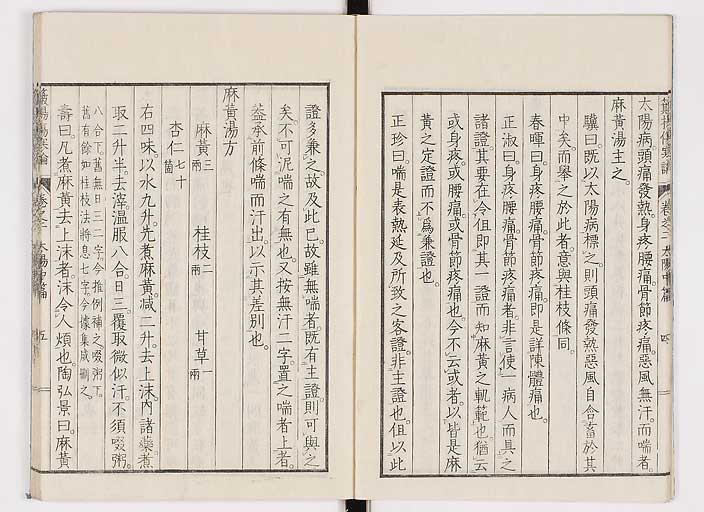 太陽病。頭痛發熱。身疼腰痛。骨節疼痛。惡風無汗。而喘者。
麻黃湯主之。
驥曰。既以太陽病標之。則頭痛發熱惡風自含畜於其
中矣。而擧之於此者。意與桂枝條同。
春暉曰。身疼腰痛骨節疼痛。即是詳陳體痛也。
正淑曰。身疼腰痛。骨節疼痛者。非言使一病人而具之
諸證。其要在令但即其一證而知麻黃之軌範也。猶云
或身疼。或腰痛。或骨節疼痛也。今不云或者。以皆是麻
黃之定證而不爲兼證也。
正珍曰。喘是表熱延及所致之客證。非主證也。但以此
證多兼之。故及此已。故雖無喘者。既有主證。則可與之
矣。不可泥喘之有無也。又按無汗二字。置之喘者上者。
葢承前條喘而汗出。以示其差別也。
麻黃湯方
麻黃三兩 桂枝二兩 甘草一兩
杏仁七十箇
右四味。以水九升。先煮麻黃。減二升。去上沫。内諸藥。煮
取二升半。去滓。溫服八合。日三。覆取微似汗。不須啜粥。
八合下。舊無日三二字。今推例補之。啜粥下。
舊有餘如桂枝法將息七字。今據集成刪之。
壽曰。凡煮麻黃去上沫者。沫令人煩也。陶弘景曰。麻黃
卷之二 太陽中篇 四
卷之二 太陽中篇 五